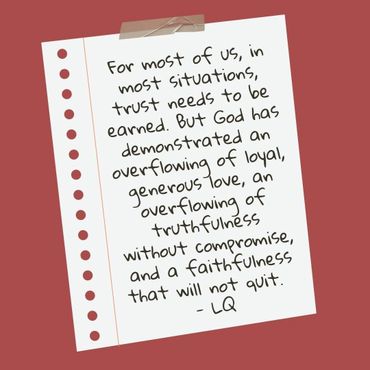 For most of us, in
most situations,
trust needs to be
earned. But God has
demonstrated an
overflowing of loyal,
generous love, an
overflowing of
truthfulness
without compromise,
and a faithfulness
that will not quit.
- LQ